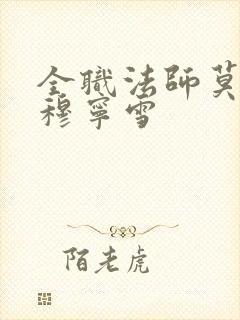 全職法師莫
穆寧雪
陌老虎